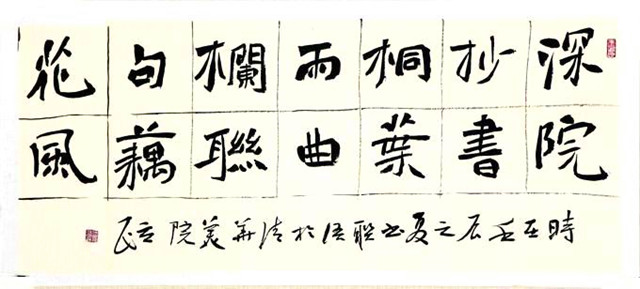 深院
抄書
桐葉
雨曲
欄聯
句藕
花風
時在壬辰之夏书联语於清華美院